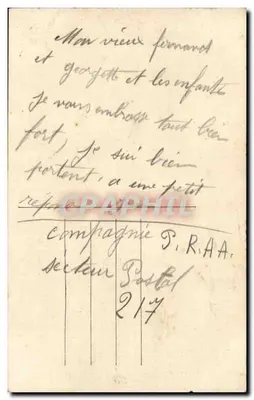 Mon vieux fernand
et georgette et les enfants
je vous embrasse tout bien
fort, je sui bien
portent, a une petit
CPARAMA.COM
compagnie P.R.A.A.
secteur Postal
217